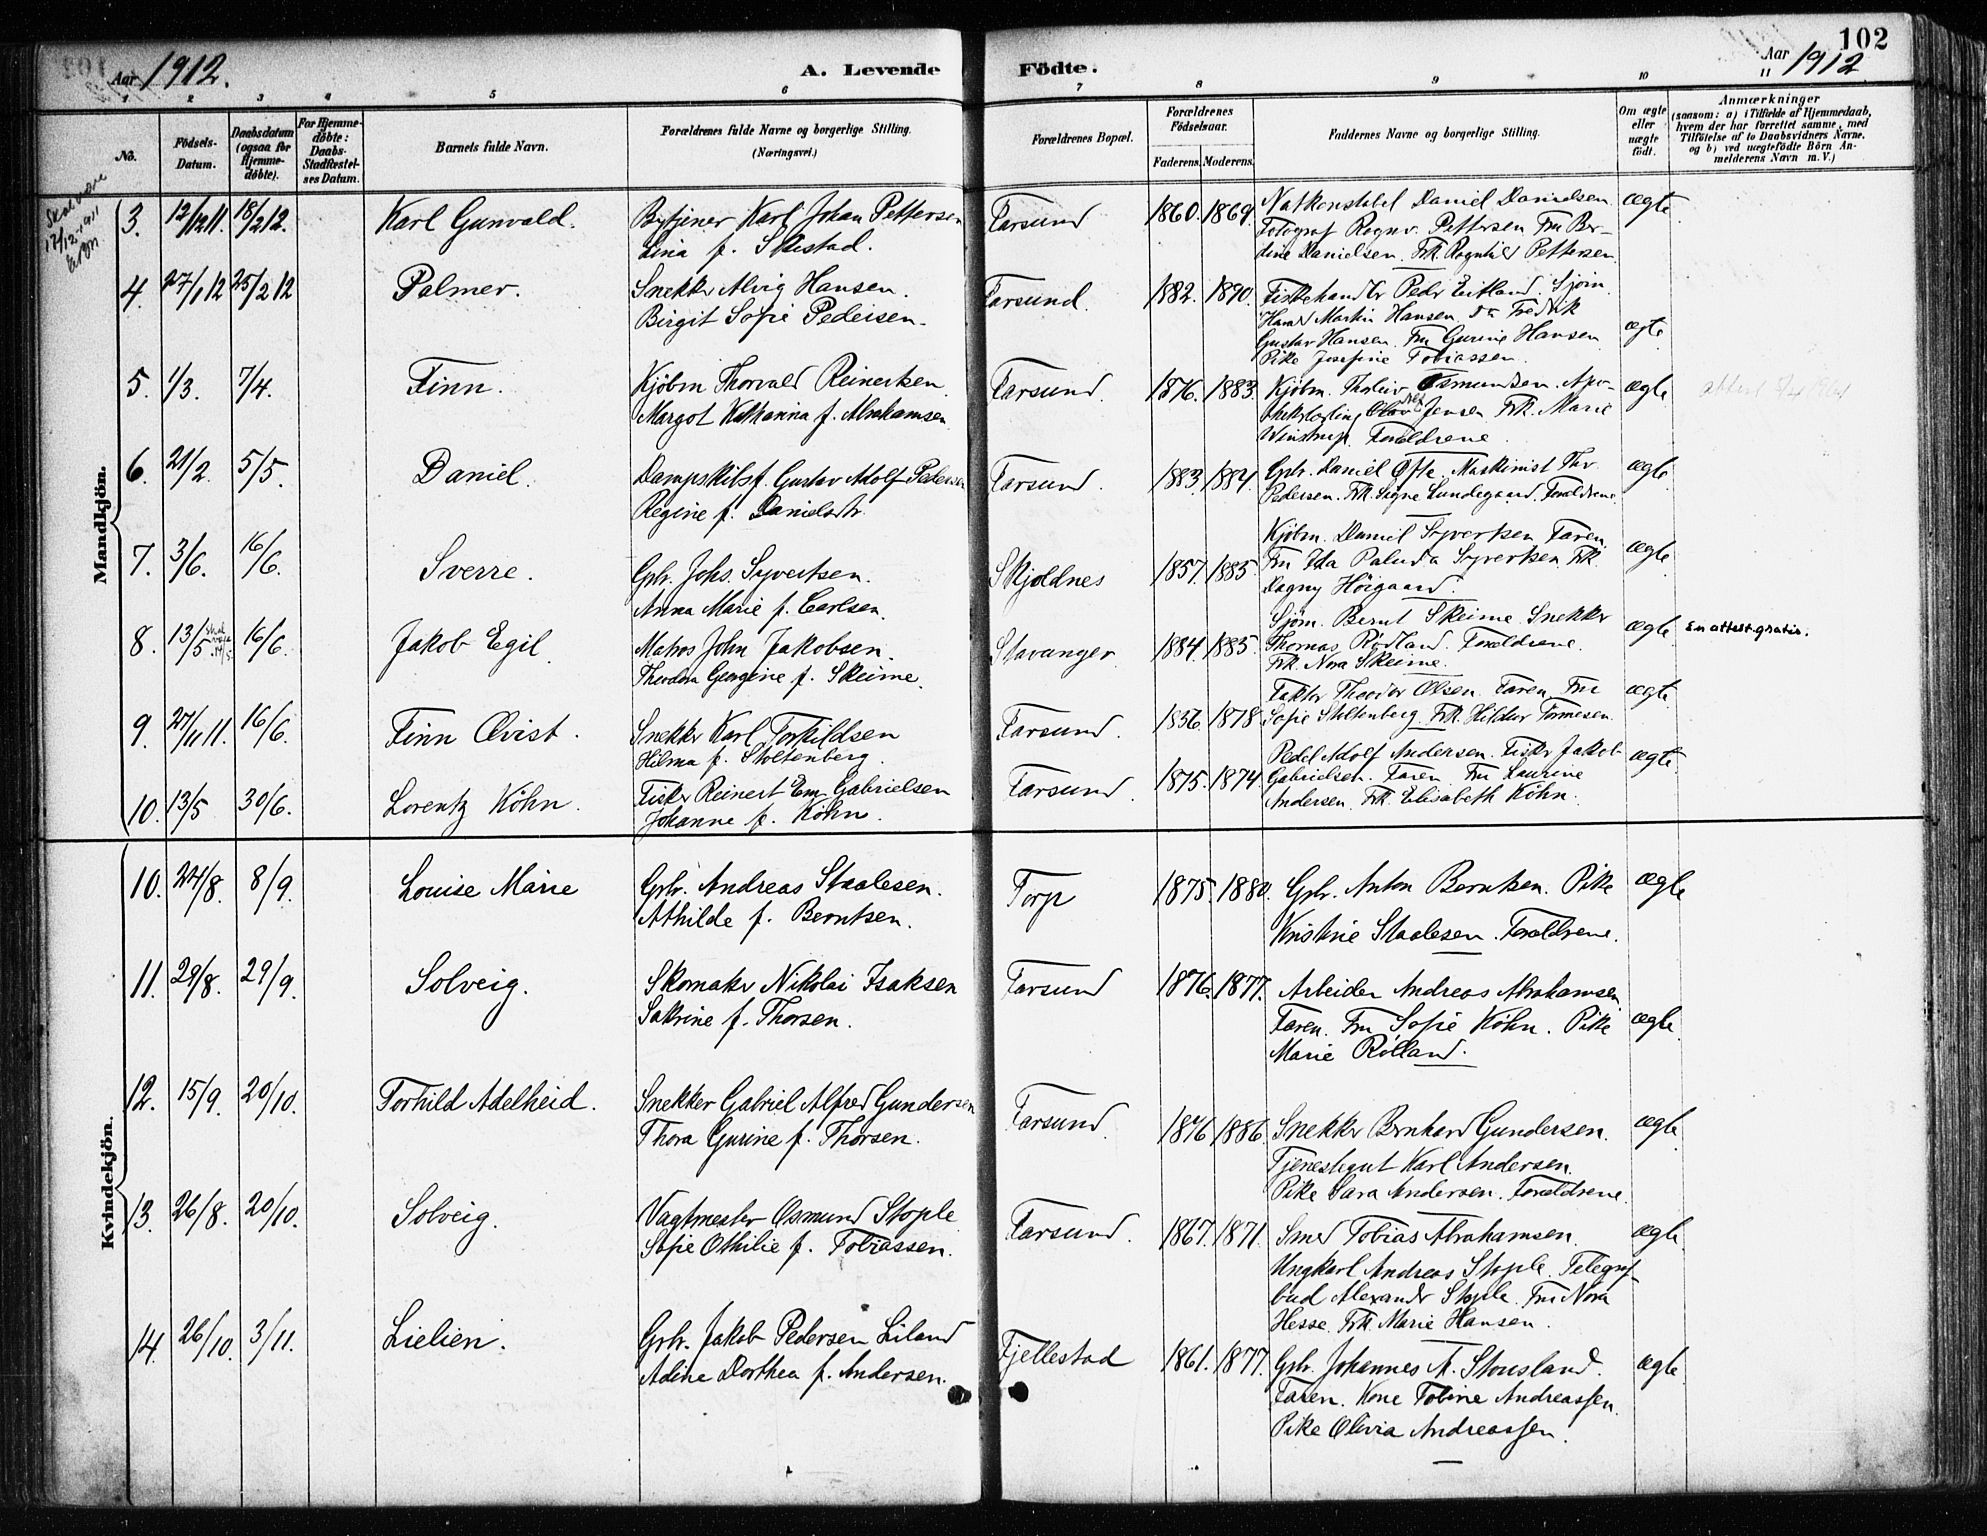 Aar 1912.
A. Levende Födte.
Aar 1912
102
1 2 3 4 5 6 7 8 9 10 11
No.
Födsels-Datum.
Daabsdatum (ogsaa for Hjemmedøbte).
For Hjemmedøbte: Daabs-Stadfæstelses Datum.
Barnets fulde Navn.
Forældrenes fulde Navne og borgerlige Stilling. (Næringsvei.)
Forældrenes Bopæl.
Forældrenes Födselsaar.
Faderens. Moderens.
Faddernes Navne og borgerlige Stilling.
Om ægte eller uægte födt.
Anmærkninger
(saasom: a) i Tilfælde af Hjemmedaab, hvem der har forrettet samme, med Tilföielse af to Daabsvidners Navne, og b) ved uægtefödte Börn Anmelderens Navn m. V.)
Skal være 17/12-1911
Mandkjön.
3. 12/12 11. 18/2 12. Karl Gunvald. Bytjener Karl Johan Pettersen Farsund 1860. 1869. Natkonstabel Daniel Danielsen ægte
Lina f. Skistad. Fotograf Ragnv. Pettersen Fru Ber-
dine Danielsen. Frk. Ragnhild Pettersen
4. 27/1 12 25/2 12 Palmer. Snekker Alvig Hansen. Farsund. 1882. 1890. Fiskehandler Peder Eitland. Sjöm.
Birgit Sofie Pedersen. Martin Hansen Fredrik ægte
Gustav Hansen. Fru Gurine Hansen
Pike Josefine Tobiassen.
5. 1/3. 7/4. Finn. Kjöbm Thorvald Reinertsen Farsund. 1876. 1883. Kjöbm. Thorleiv Osmundsen. Apo- ægte
Margot Katharina f. Abrahamsen Jensen Frk. Marie
Winstrup. Forældrene.
6. 21/2. 5/5. Daniel. Dampskibsf. Gustav Adolf Pedersen Farsund. 1883. 1884. Grbr. Daniel Ofte. Maskinist Thv. ægte
Regine f. Danielsdtr. Pedersen. Frk. Signe Lundegaard. Forældrene
7. 3/6. 16/6. Sverre. Grbr. Johs. Syvertsen. Skjoldnes 1857. 1885. Kjöbm. Daniel Syvertsen Faren. ægte
Anna Marie f. Carlsen. Fru Ida Paluda Syvertsen Frk.
Dagny Höigaard.
8. 13/5 skal være 14/5. 16/6. Jakob Egil. Matros John Jakobsen. Stavanger 1884. 1885. Sjöm. Bernt Skeime Snekker ægte En attest gratis.
Theodora Georgine f. Skeime. Thomas Rödland. Forældrene.
Frk. Nora Skeime.
9. 27/11 11. 16/6. Finn Qvist. Snekker Karl Torkildsen Farsund. 1878 Faktor Theodor Olsen. Faren Fru ægte
Hilma f. Stoltenberg. Sofie Stoltenberg. Frk. Hildur Tormesen
10. 13/5 30/6. Lorentz Köhn. Fisker Reinert Em. Gabrielsen Farsund. 1875. 1874. Pedel Adolf Andersen. Fisker Jakob ægte
Johanne f. Köhn. Gabrielsen. Faren. Fru Laurine
Andersen. Frk. Elisabeth Köhn.
Kvindekjön.
10. 24/8. 8/9. Louise Marie Grbr. Andreas Staalesen. Torp 1875. 1880. Grbr. Anton Berntsen. Pike ægte
Athilde f. Berntsen. Kristine Staalesen. Forældrene.
11. 29/8. 29/9. Solveig. Skomaker Nikolai Isaksen Farsund 1876. 1877. Arbeider Andreas Abrahamsen
Sakrine f. Thorsen. Faren. Fru Sofie Köhn. Pike ægte
Marie Rölland.
12. 15/9. 20/10. Torhild Adelheid. Snekker Gabriel Alfred Gundersen Farsund. 1876 1886. Snekker Bernhard Gundersen. ægte
Thora Gurine f. Thorsen. Tjenestegut Karl Andersen.
Pike Sara Andersen. Forældrene.
13. 26/8. 20/10. Solveig. Vagtmester Osmund Stople Farsund. 1867. 1871. Smed Tobias Abrahamsen. ægte
Sofie Othilie f. Tobiassen. Ungkarl Andreas Stople. Telegraf-
bud Alexander Stople. Fru Nora
Hesse. Frk. Marie Hansen.
14. 26/10. 3/11. Lielien. Grbr. Jakob Pedersen Liland Fjellestad 1861. 1877. Grbr. Johannes A. Stousland. ægte
Adine Dorthea f. Andersen. Faren. Kone Tobine Andreassen.
Pike Olivia Andreassen.